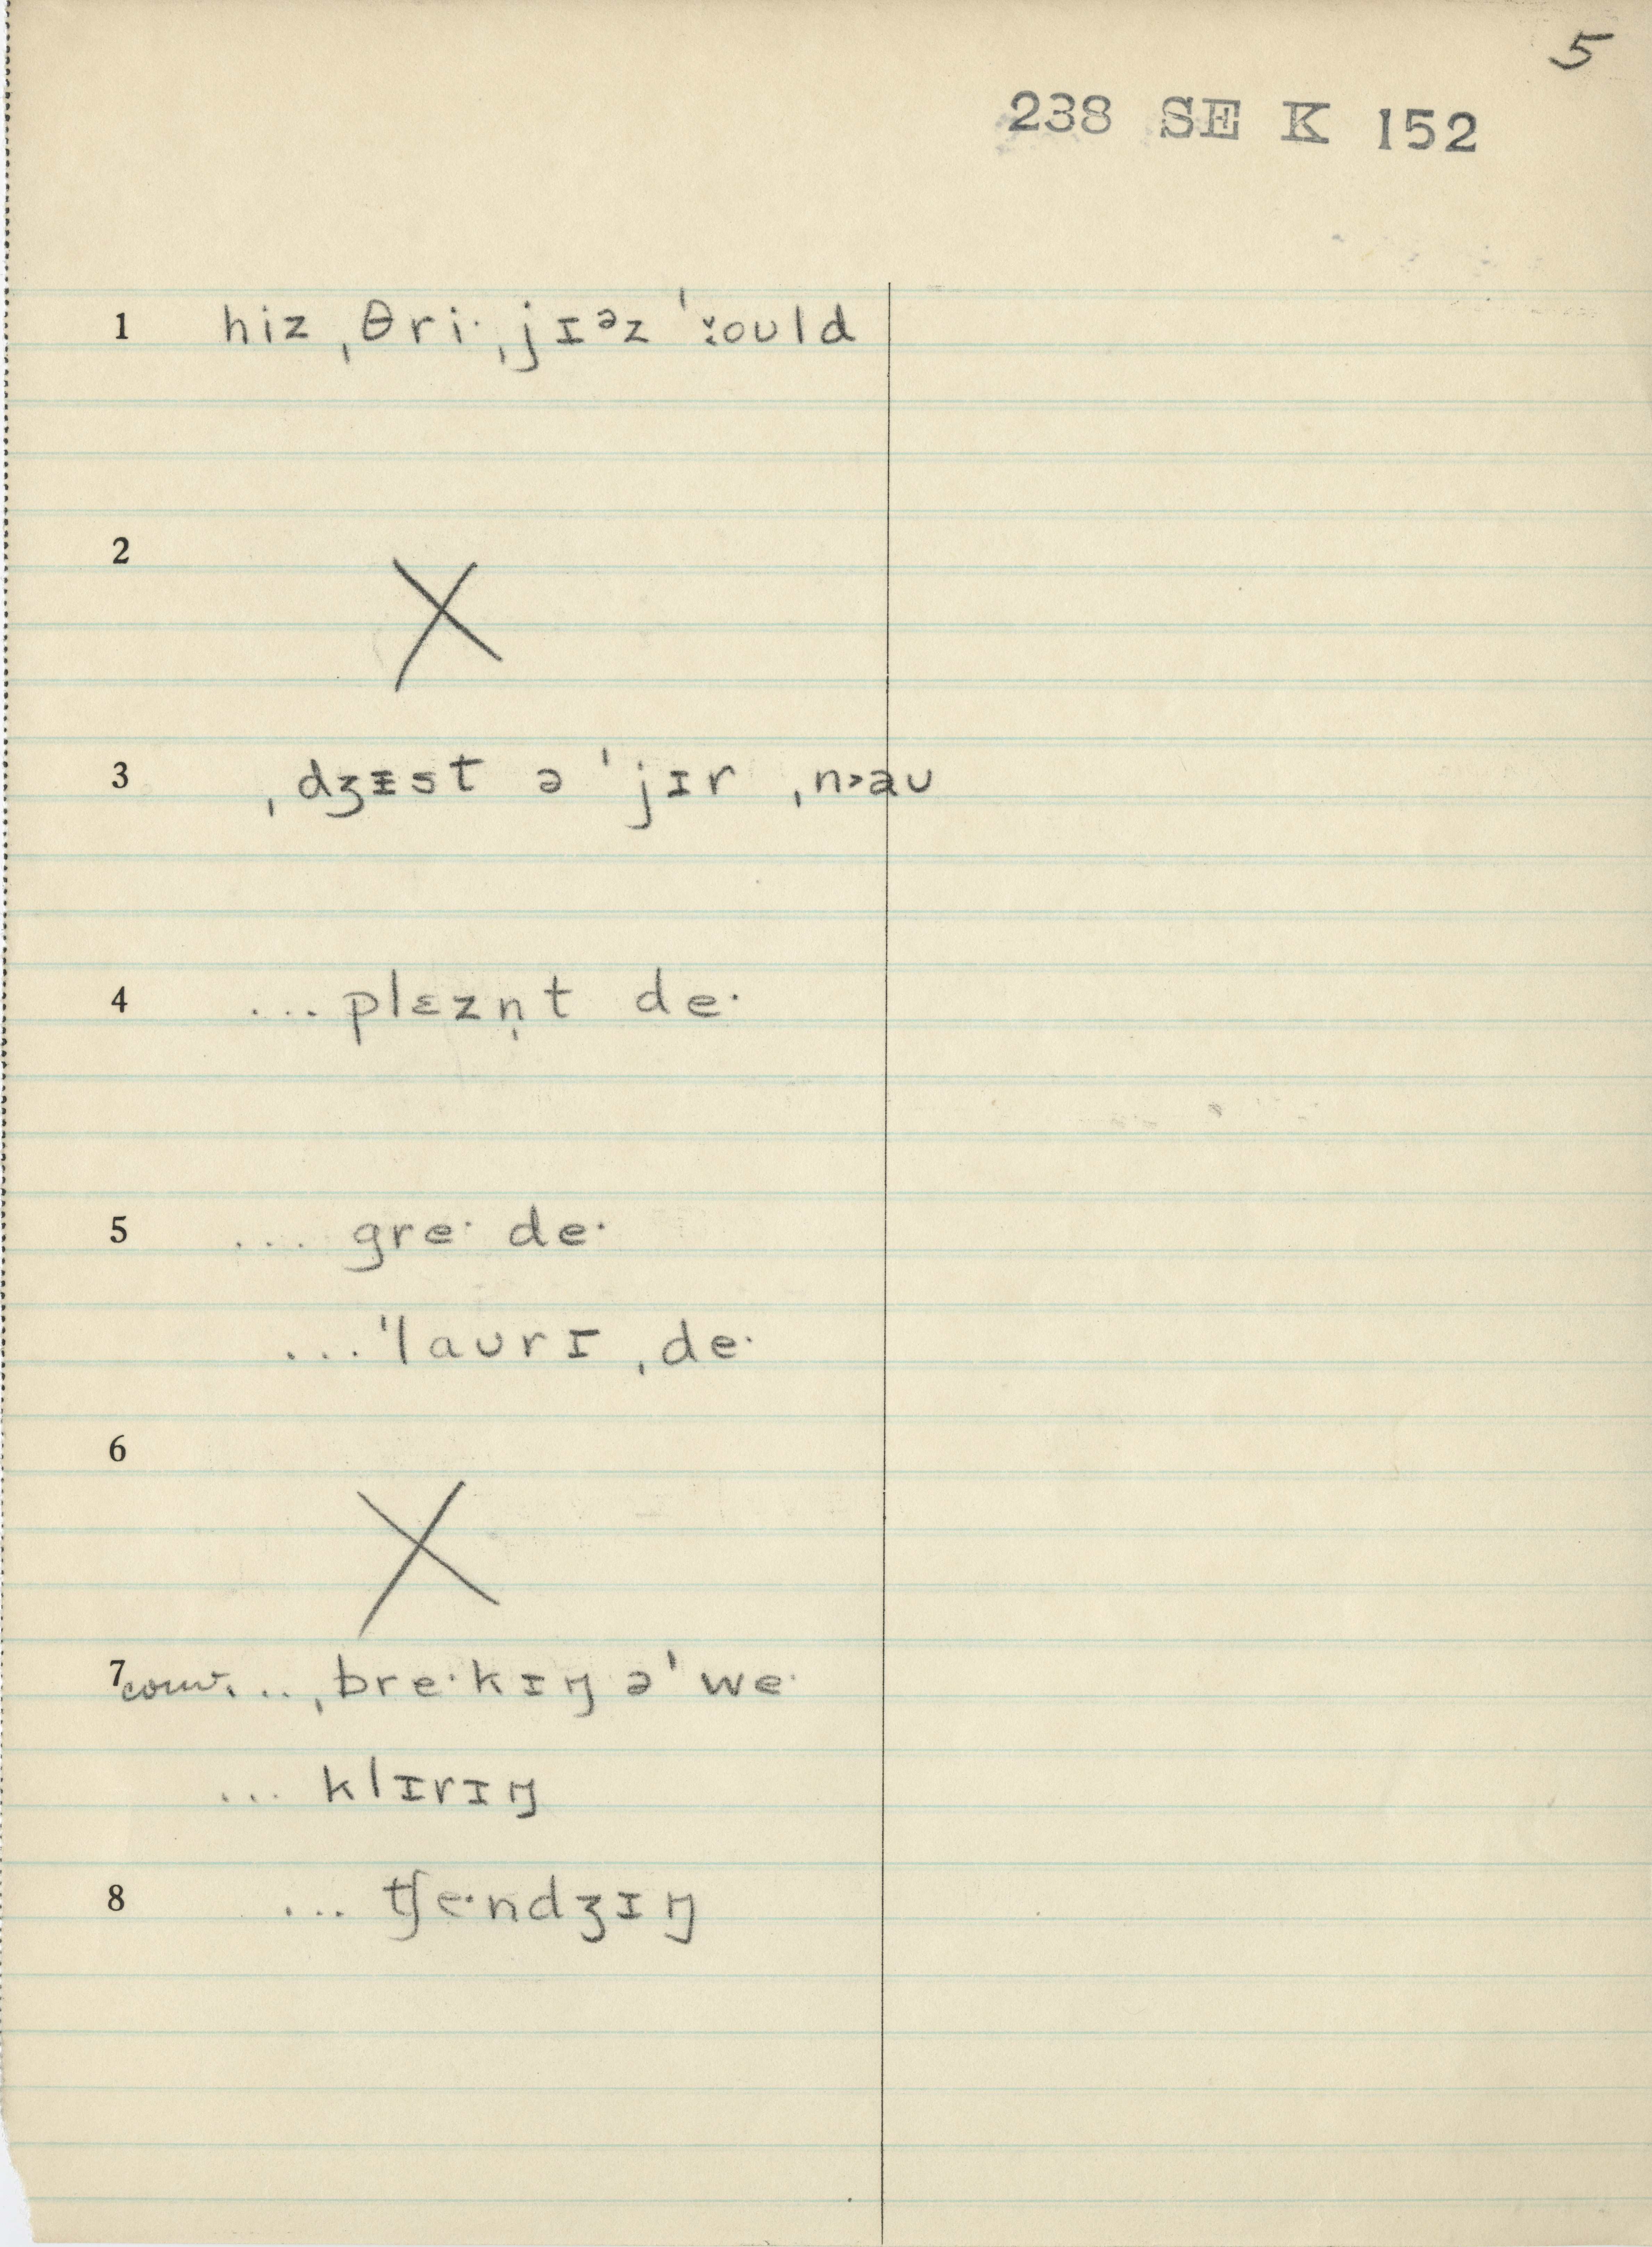 5
238 SE K 152
1 hiz ˌθri· ˌjɪᵊz ˈould
2 X
3 ˌdʒɪ̵st ə ˈjɪr ˌn>aʊ
4 ... plɛzn̩t de·
5 ... gre· de·
... ˈlaʊrɪ ˌde·
6 X
7 conv. ... ˌbre·kɪŋ əˈwe·
... klɪrɪŋ
8 ... tʃe·ndʒɪŋ